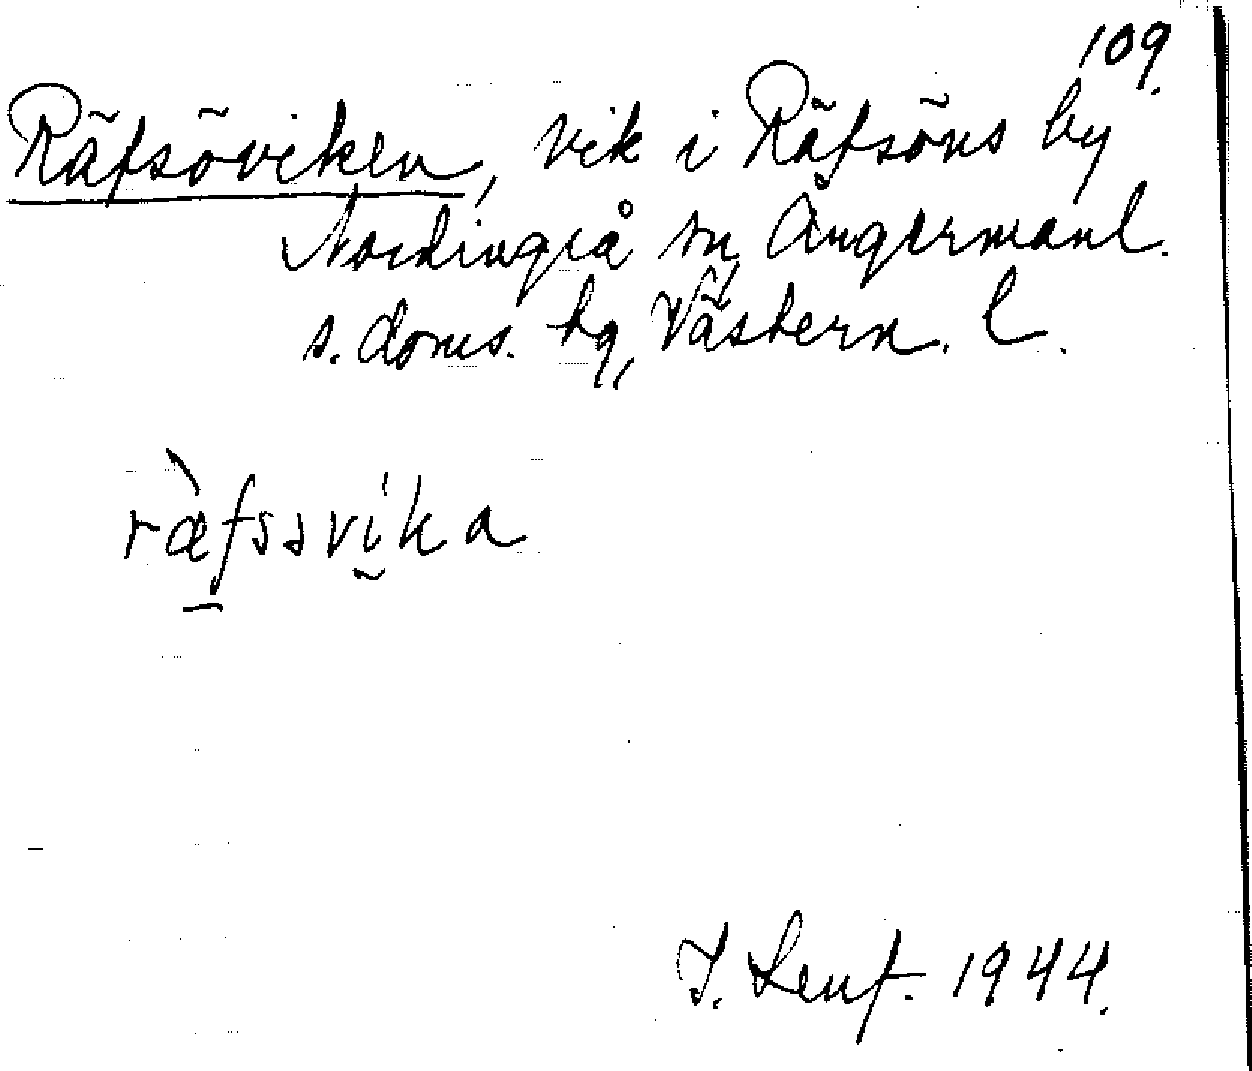 109.
Räfsöviken, vik i Räfsöns by
Nordingrå sn, Ångermanl.
s. doms. tg, Västern. l.
ræ̀fssvika
J. Lenf. 1944.